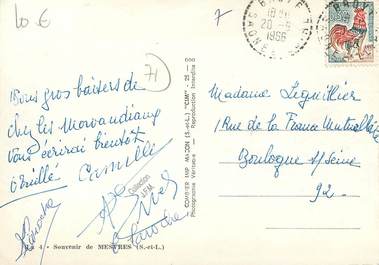 10 €
7
71
18H
20-8
1966
RHONE
Bons gros baisers de
chez les Morvandiaux
Vous écrirai bientôt
Camille
Madame Leguillier
1 Rue de la France Mutualiste
Boulogne s/Seine
92.
COMBIER IMP. MACON (S.-et-L.) "CIM"
Photographie Véritable - Reproduction Interdite
Collection
JFM
4 - Souvenir de MESVRES (S.-et-L.)